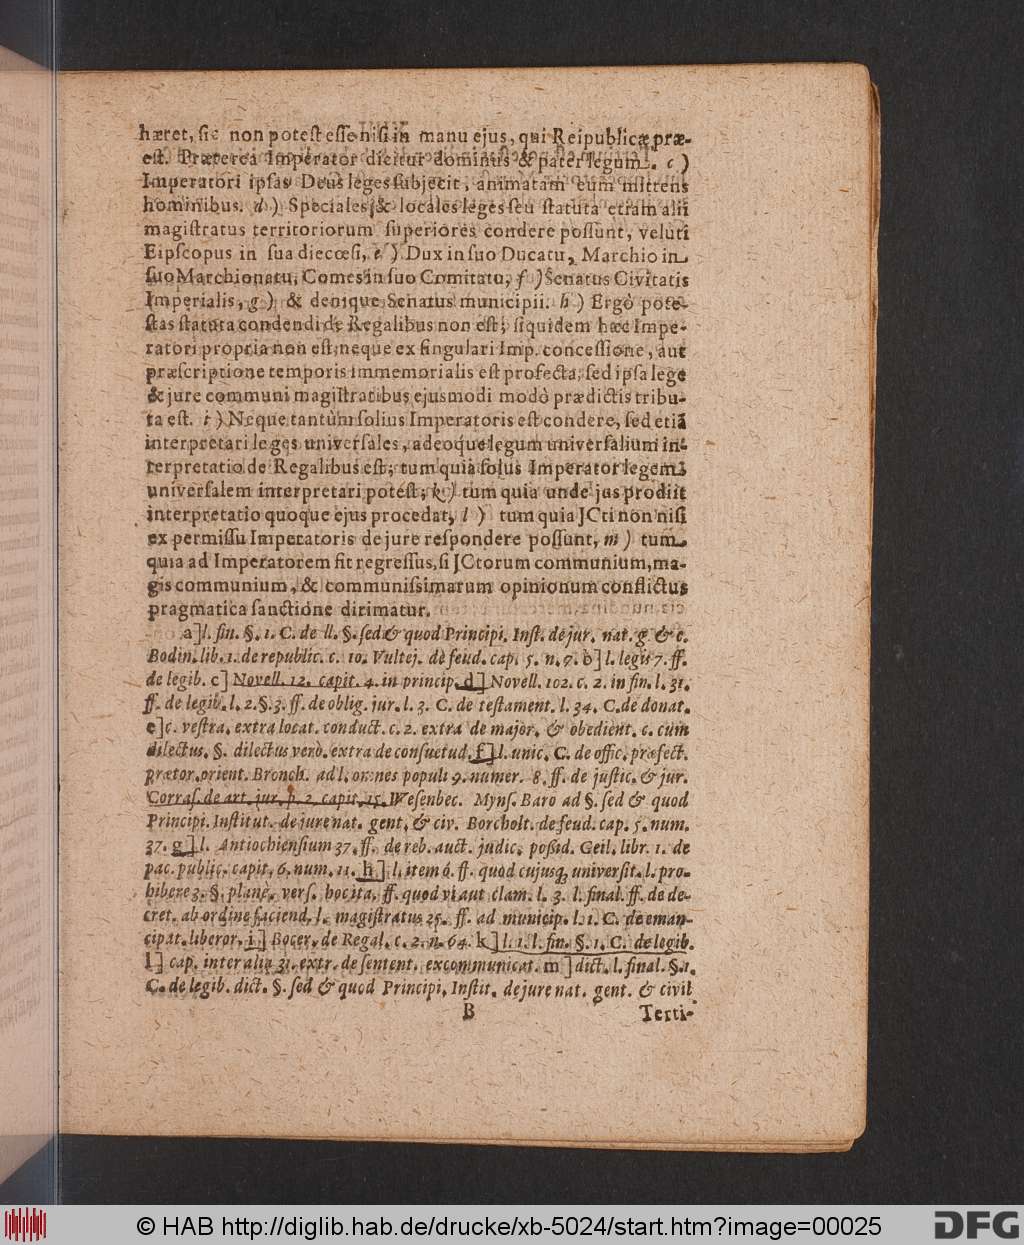 hæret, ſic non poteſt eſſe niſi in manu ejus, qui Reipublicæ præ-
est. Præterea Imperator dicitur dominus & pater legum. c)
Imperatori ipſas Deus leges ſubjecit, animatam eum mittens
hominibus. d) Speciales & locales leges ſeu ſtatuta etiam alii
magiſtratus territoriorum ſuperiores condere poſſunt, veluti
Eipſcopus in ſua diecœſi, e) Dux in ſuo Ducatu, Marchio in
ſuo Marchionatu, Comes in ſuo Comitatu, f) Senatus Civitatis
Imperialis, g) & denique Senatus municipii. h) Ergò pote-
ſtas ſtatuta condendi de Regalibus non eſt; ſiquidem hæc Impe-
ratori propria non eſt, neque ex ſingulari Imp. conceſſione, aut
præſcriptione temporis immemorialis eſt profecta, ſed ipſa lege
& jure communi magiſtratibus ejusmodi modò prædictis tribu-
ta eſt. i) Neque tantùm ſolius Imperatoris eſt condere, ſed etiã
interpretari leges univerſales, adeoque legum univerſalium in-
terpretatio de Regalibus eſt; tum quia ſolus Imperator legem
univerſalem interpretari poteſt; k) tum quia unde jus prodiit
interpretatio quoque ejus procedat, l) tum quia JCti non niſi
ex permiſſu Imperatoris de jure reſpondere poſſunt, m) tum
quia ad Imperatorem fit regreſſus, ſi JCtorum communium, ma-
gis communium, & communiſsimarum opinionum conflictus
pragmatica ſanctione dirimatur.
a] l. fin. §. 1. C. de ll. §. ſed & quod Principi. Inſt. de jur. nat. g. & c.
Bodin. lib. 1. de republic. c. 10. Vultej. dè feud. cap. 5. n. 7. b] l. legis 7. ff.
de legib. c] Novell. 12. capit. 4. in princip. d] Novell. 102. c. 2. in fin. l. 31.
ff. de legib. l. 2. §. 3. ff. de oblig. jur. l. 3. C. de teſtament. l. 34. C. de donat.
e] c. veſtra, extra locat. conduct. c. 2. extra de major. & obedient. c. cùm
dilectus. §. dilectus verò. extra de conſuetud. f] l. unic. C. de offic. præfect.
prætor. orient. Bronch. ad l. omnes populi 9. numer. 8. ff. de juſtic. & jur.
Corraſ. de art. jur. p. 2. capit. 15. Weſenbec. Mynſ. Baro ad §. ſed & quod
Principi. Inſtitut. de jure nat. gent. & civ. Borcholt. de feud. cap. 5. num.
37. g] l. Antiochienſium 37. ff. de reb. auct. judic. poßid. Geil. libr. 1. de
pac. public. capit. 6. num. 11. h] l. item 6. ff. quod cujusq, univerſit. l. pro-
hibere 3. §. planè. verſ. hoc ita. ff. quod vi aut clam. l. 3. l. final. ff. de de-
cret. ab ordine faciend. l. magiſtratus 25. ff. ad municip. l. 1. C. de eman-
cipat. liberor. i] Bocer. de Regal. c. 2. n. 64. k] l. 1. l. fin. §. 1. C. de legib.
l] cap. inter alia 31. extr. de ſentent. excommunicat. m] dict. l. final. §. 1.
C. de legib. dict. §. ſed & quod Principi, Inſtit. de jure nat. gent. & civil
B Terti-
© HAB http://diglib.hab.de/drucke/xb-5024/start.htm?image=00025
DFG